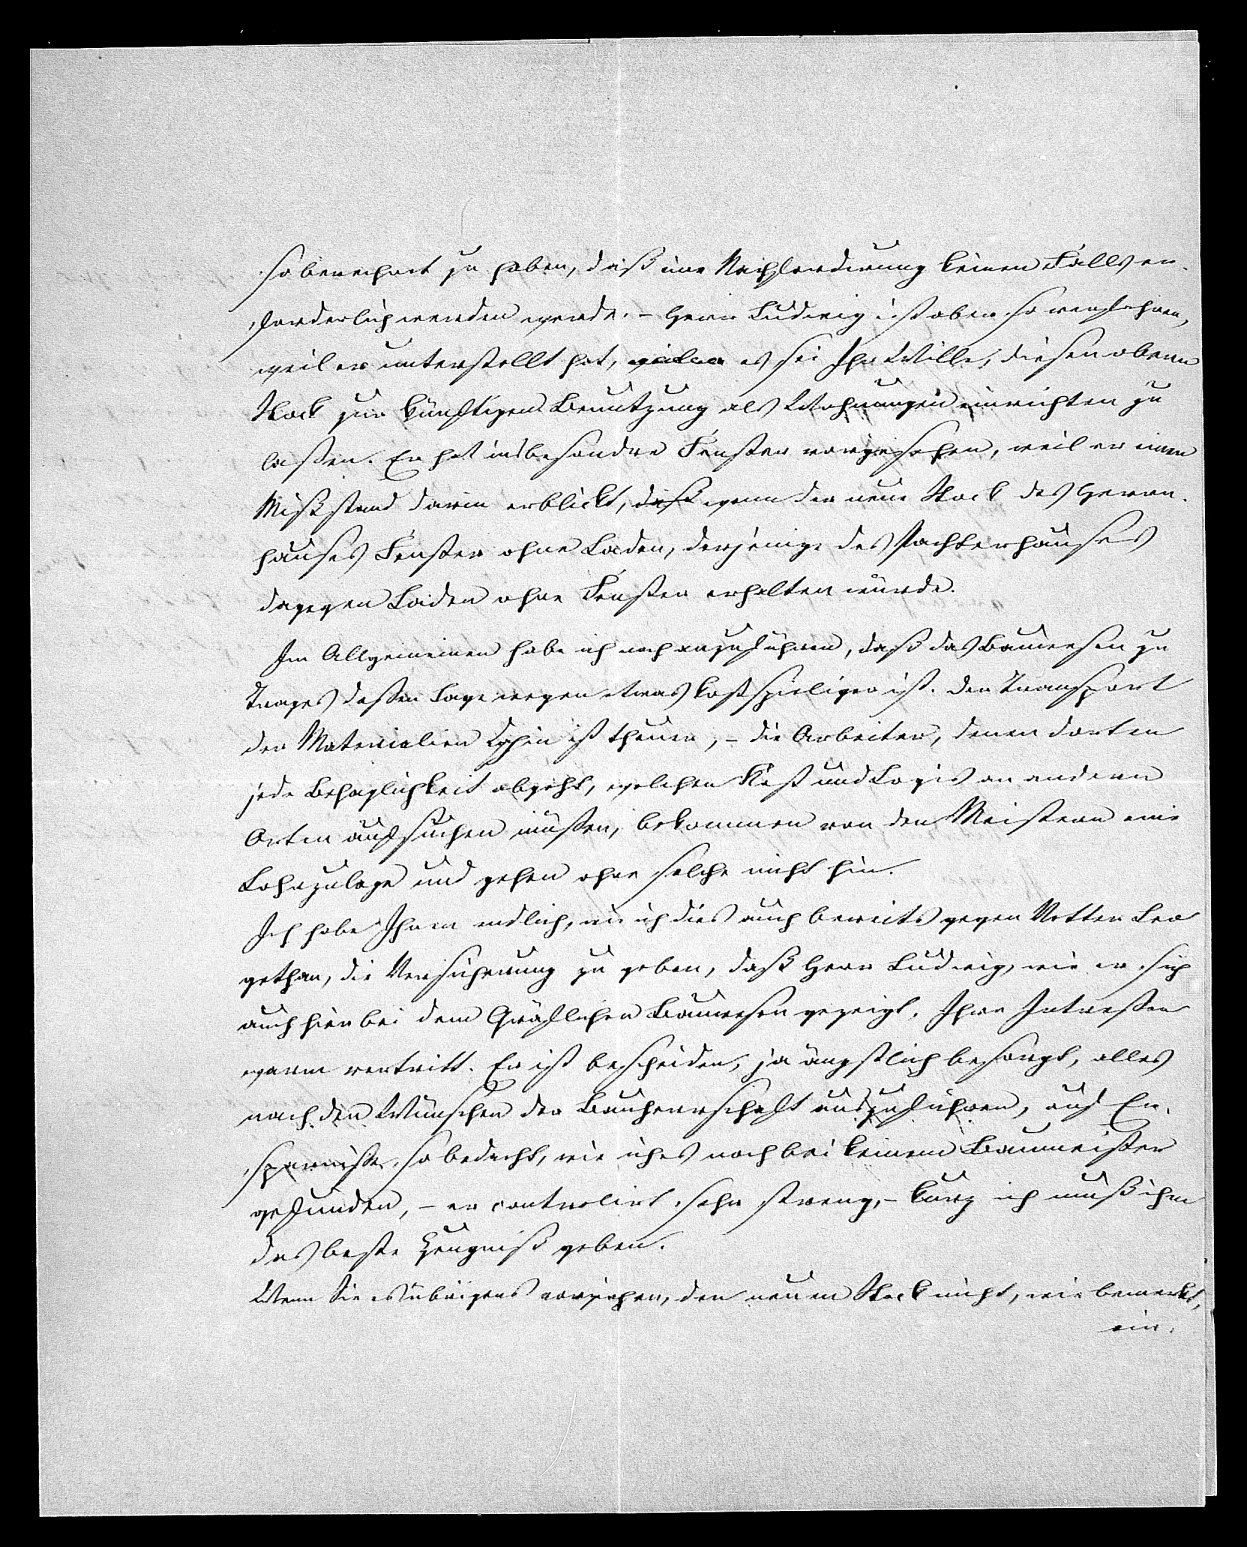 so berechnet zu haben, daß eine Nachforderung keinen Falls er-
forderlich werden werde. – Herr Ludwig ist aber so verfahren,
weil er unterstellt hat, es sei Ihr Wille, diesen oberen
Stock zur künftigen Benutzung als Wohnungen einrichten zu
laßen. Er hat insbesondre Fenster vorgesehen, weil er einen
Mißstand darin erblickt, daß wenn der neue Stock des Herrn-
hauses Fenster ohne Laden, derjenige des Pachterhauses
dagegen Laden ohne Fenster erhalten würde.
Im Allgemeinen habe ich noch anzuführen, daß das Bauwesen zu
Trages deßen Lage wegen etwas kostspieliger ist. Der Transport
der Materialien dahin ist theuer, – die Arbeiter, denen dorten
jede Behaglichkeit abgeht, welchen Kost und Logis an andern
Orten aufsuchen müßen, bekommen von den Meistern eine
Lohnzulage und gehen ohne solche nicht hin.
Ich habe Ihnen endlich, wie ich dies auch bereits gegen Vetter Leo
gethan, die Versicherung zu geben, daß Herr Ludwig, wie er sich
auch hier bei dem Gräflichen Bauwesen gezeigt, Ihre Intreßen
warm vertritt. Er ist bescheiden, ja ängstlich besorgt, alles
nach den Wünschen der Bauherrschaft auszuführen, auf Er-
sparniße so bedacht, wie ich es noch bei keinem Baumeister
gefunden, – er controlirt sehr streng, – kurz ich muß ihm
das beste Zeugniß geben.
Wenn Sie es übrigens vorziehen, den neuen Stock nicht, wie bemerkt,
ein-